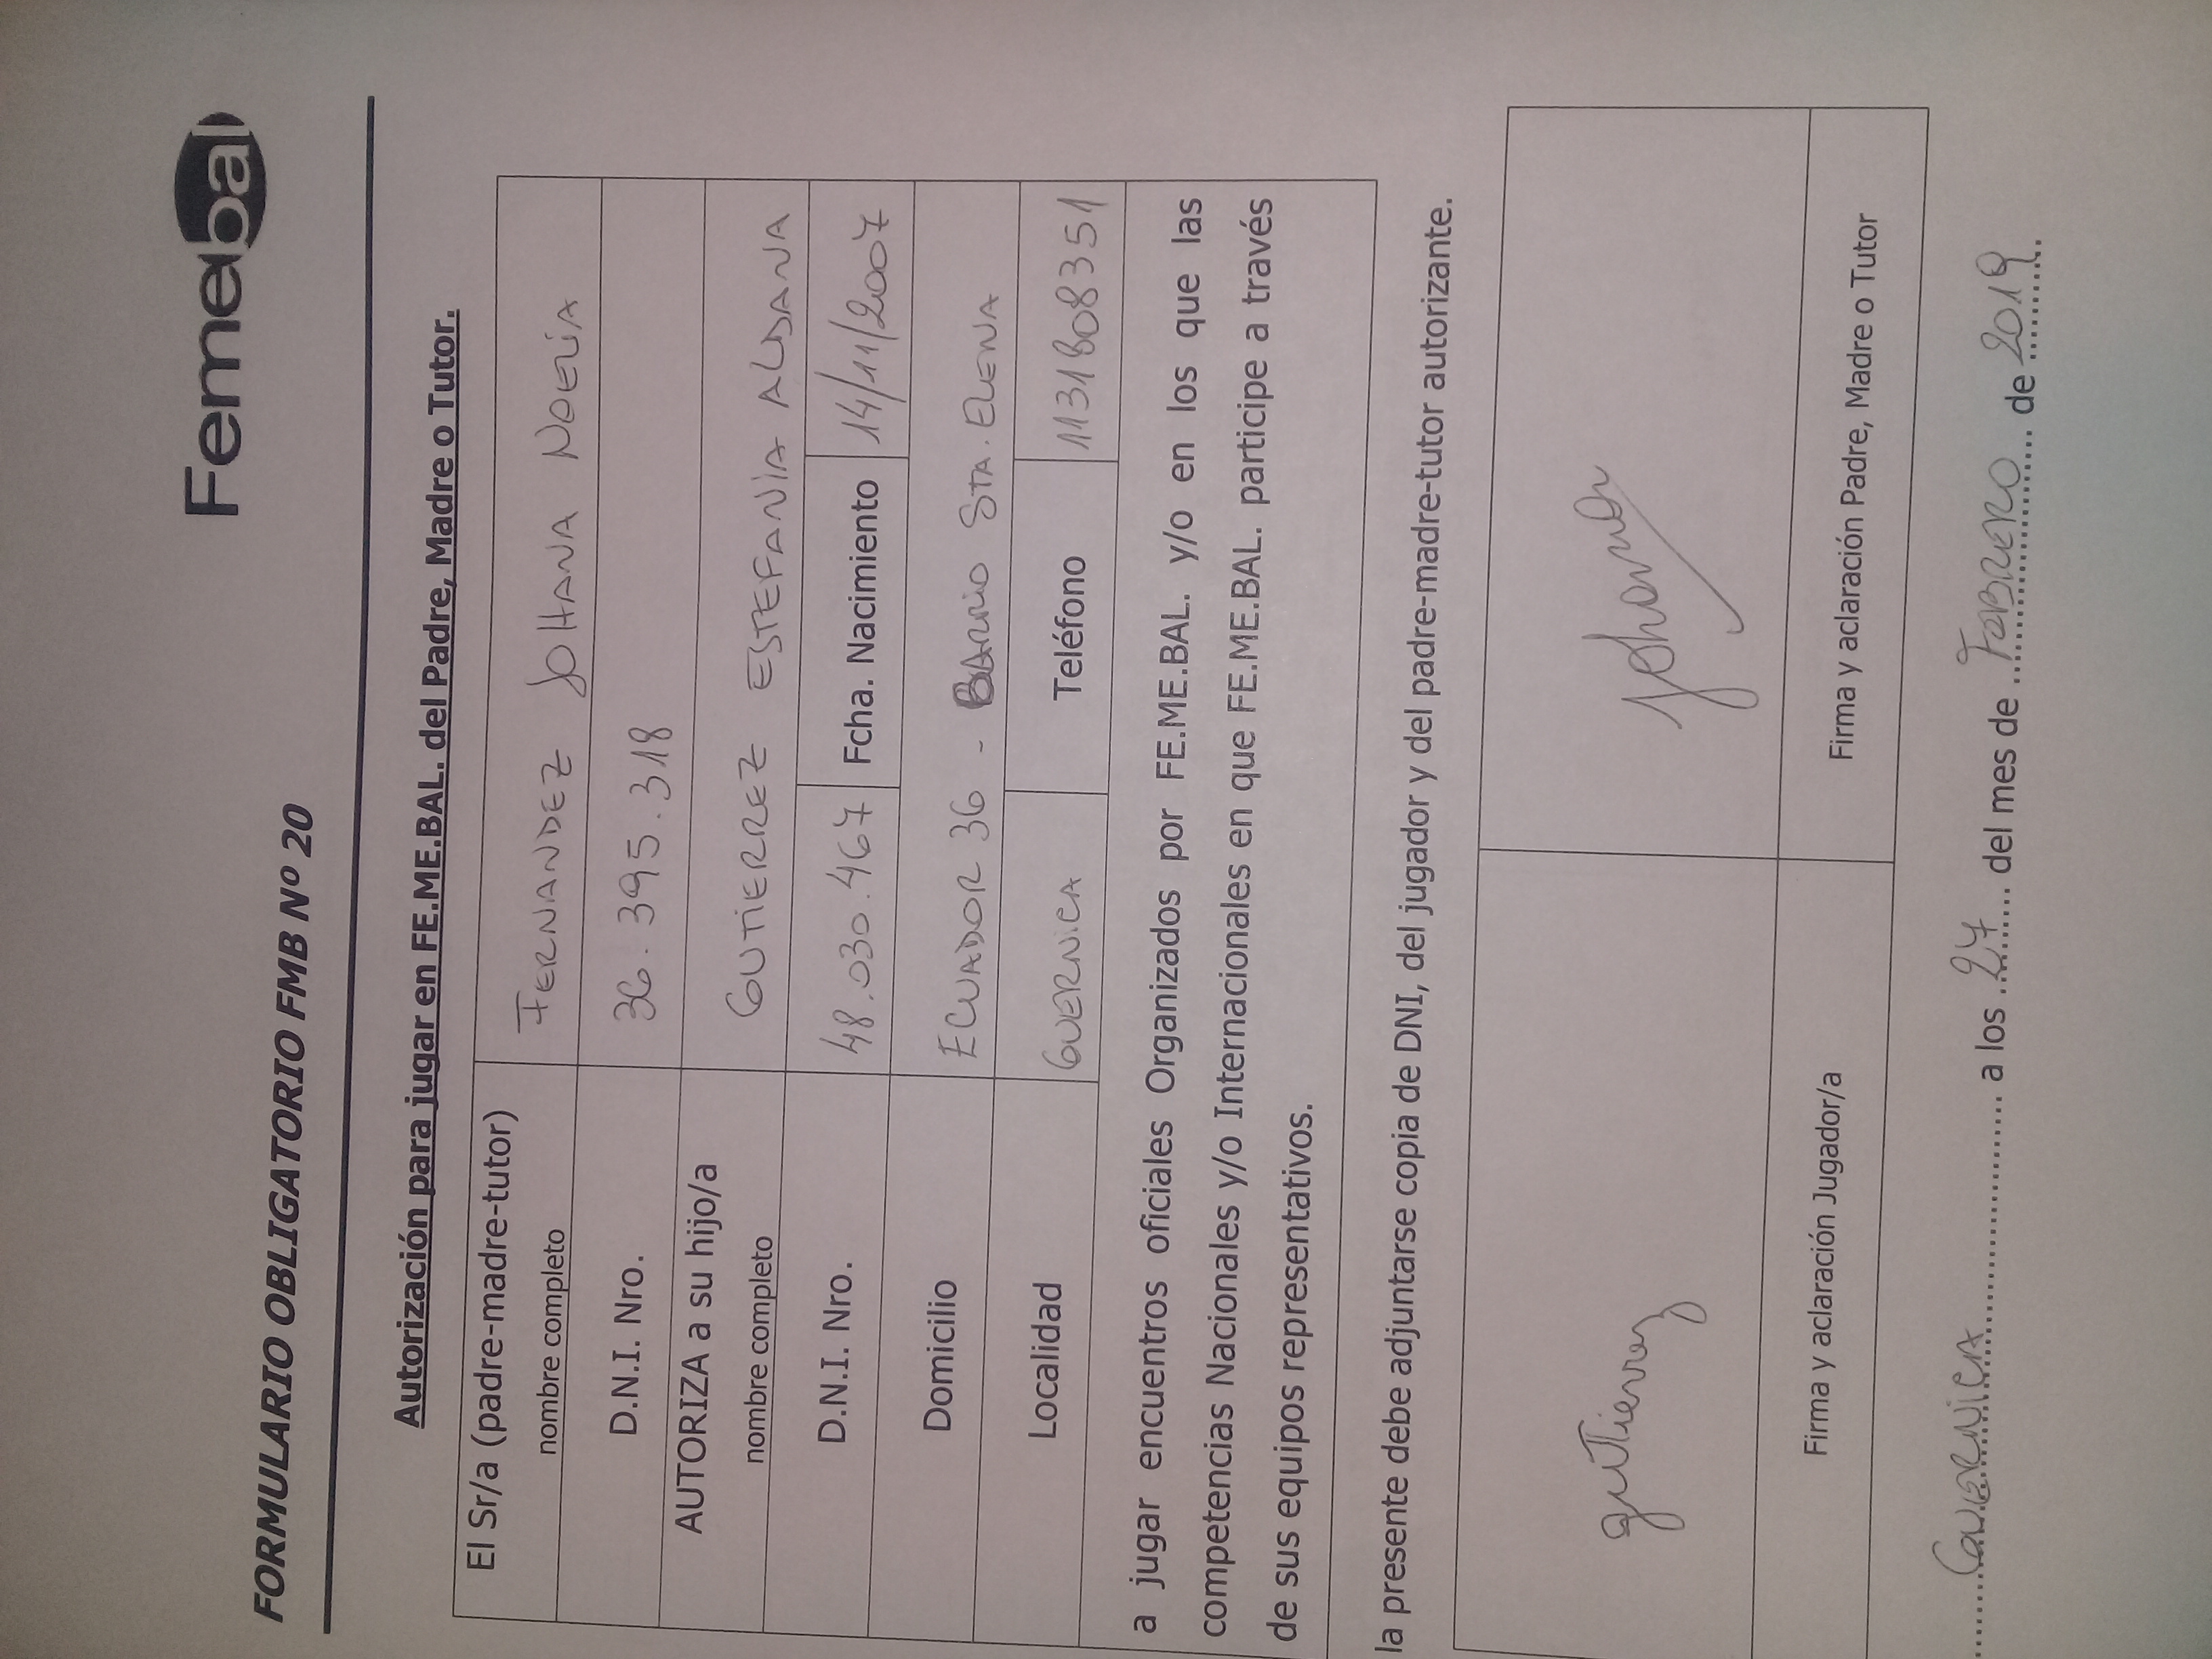 Femebal
FORMULARIO OBLIGATORIO FMB Nº 20
Autorización para jugar en FE.ME.BAL. del Padre, Madre o Tutor.
El Sr/a (padre-madre-tutor) FERNANDEZ JOHANA NOELIA
nombre completo
D.N.I. Nro. 36.395.318
AUTORIZA a su hijo/a GUTIERREZ ESTEFANIA ALDANA
nombre completo
D.N.I. Nro. 48.030.467 Fcha. Nacimiento 14/11/2007
Domicilio ECUADOR 36 - BARRIO STA. ELENA
Localidad GUERNICA Teléfono 1131808351
a jugar encuentros oficiales Organizados por FE.ME.BAL. y/o en los que las
competencias Nacionales y/o Internacionales en que FE.ME.BAL. participe a través
de sus equipos representativos.
la presente debe adjuntarse copia de DNI, del jugador y del padre-madre-tutor autorizante.
gutierrez Johana
Firma y aclaración Jugador/a Firma y aclaración Padre, Madre o Tutor
GUERNICA a los 27 del mes de FEBRERO de 2019.